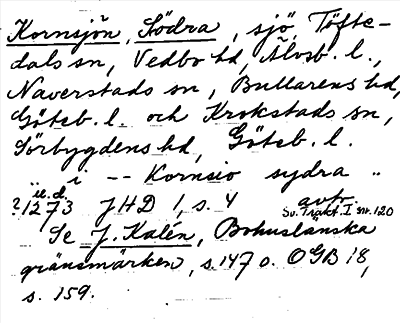 Kornsjön, Södra, sjö, Töfte-
dals sn, Vedbo hd, Älvsb. l.,
Naverstads sn, Bullarens hd,
Göteb. l. och Krokstads sn,
Sörbygdens hd, Göteb. l.
„ i -- Kornsio sydra „
u.d.
? 1273 JHD 1, s. 4 avtr.
Sv. Trakt. I nr. 120
Se J. Kalén, Bohuslänska
gränsmärken, s. 147 o. OGB 18,
s. 159.